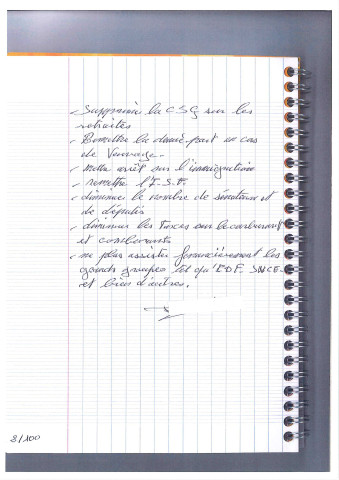 - Supprimer la CSG sur les
retraités
- Remettre la demi part en cas
de Veuvage.
- Mettre arrêt sur l'immigration
- remettre l'I.S.F.
- diminuer le nombre de sénateurs et
de députés
- diminuer les Taxes sur le carburant
et
- ne plus assister financièrement les
grands groupes tel qu'EDF. SNCF.
et bien d'autres.
8/100